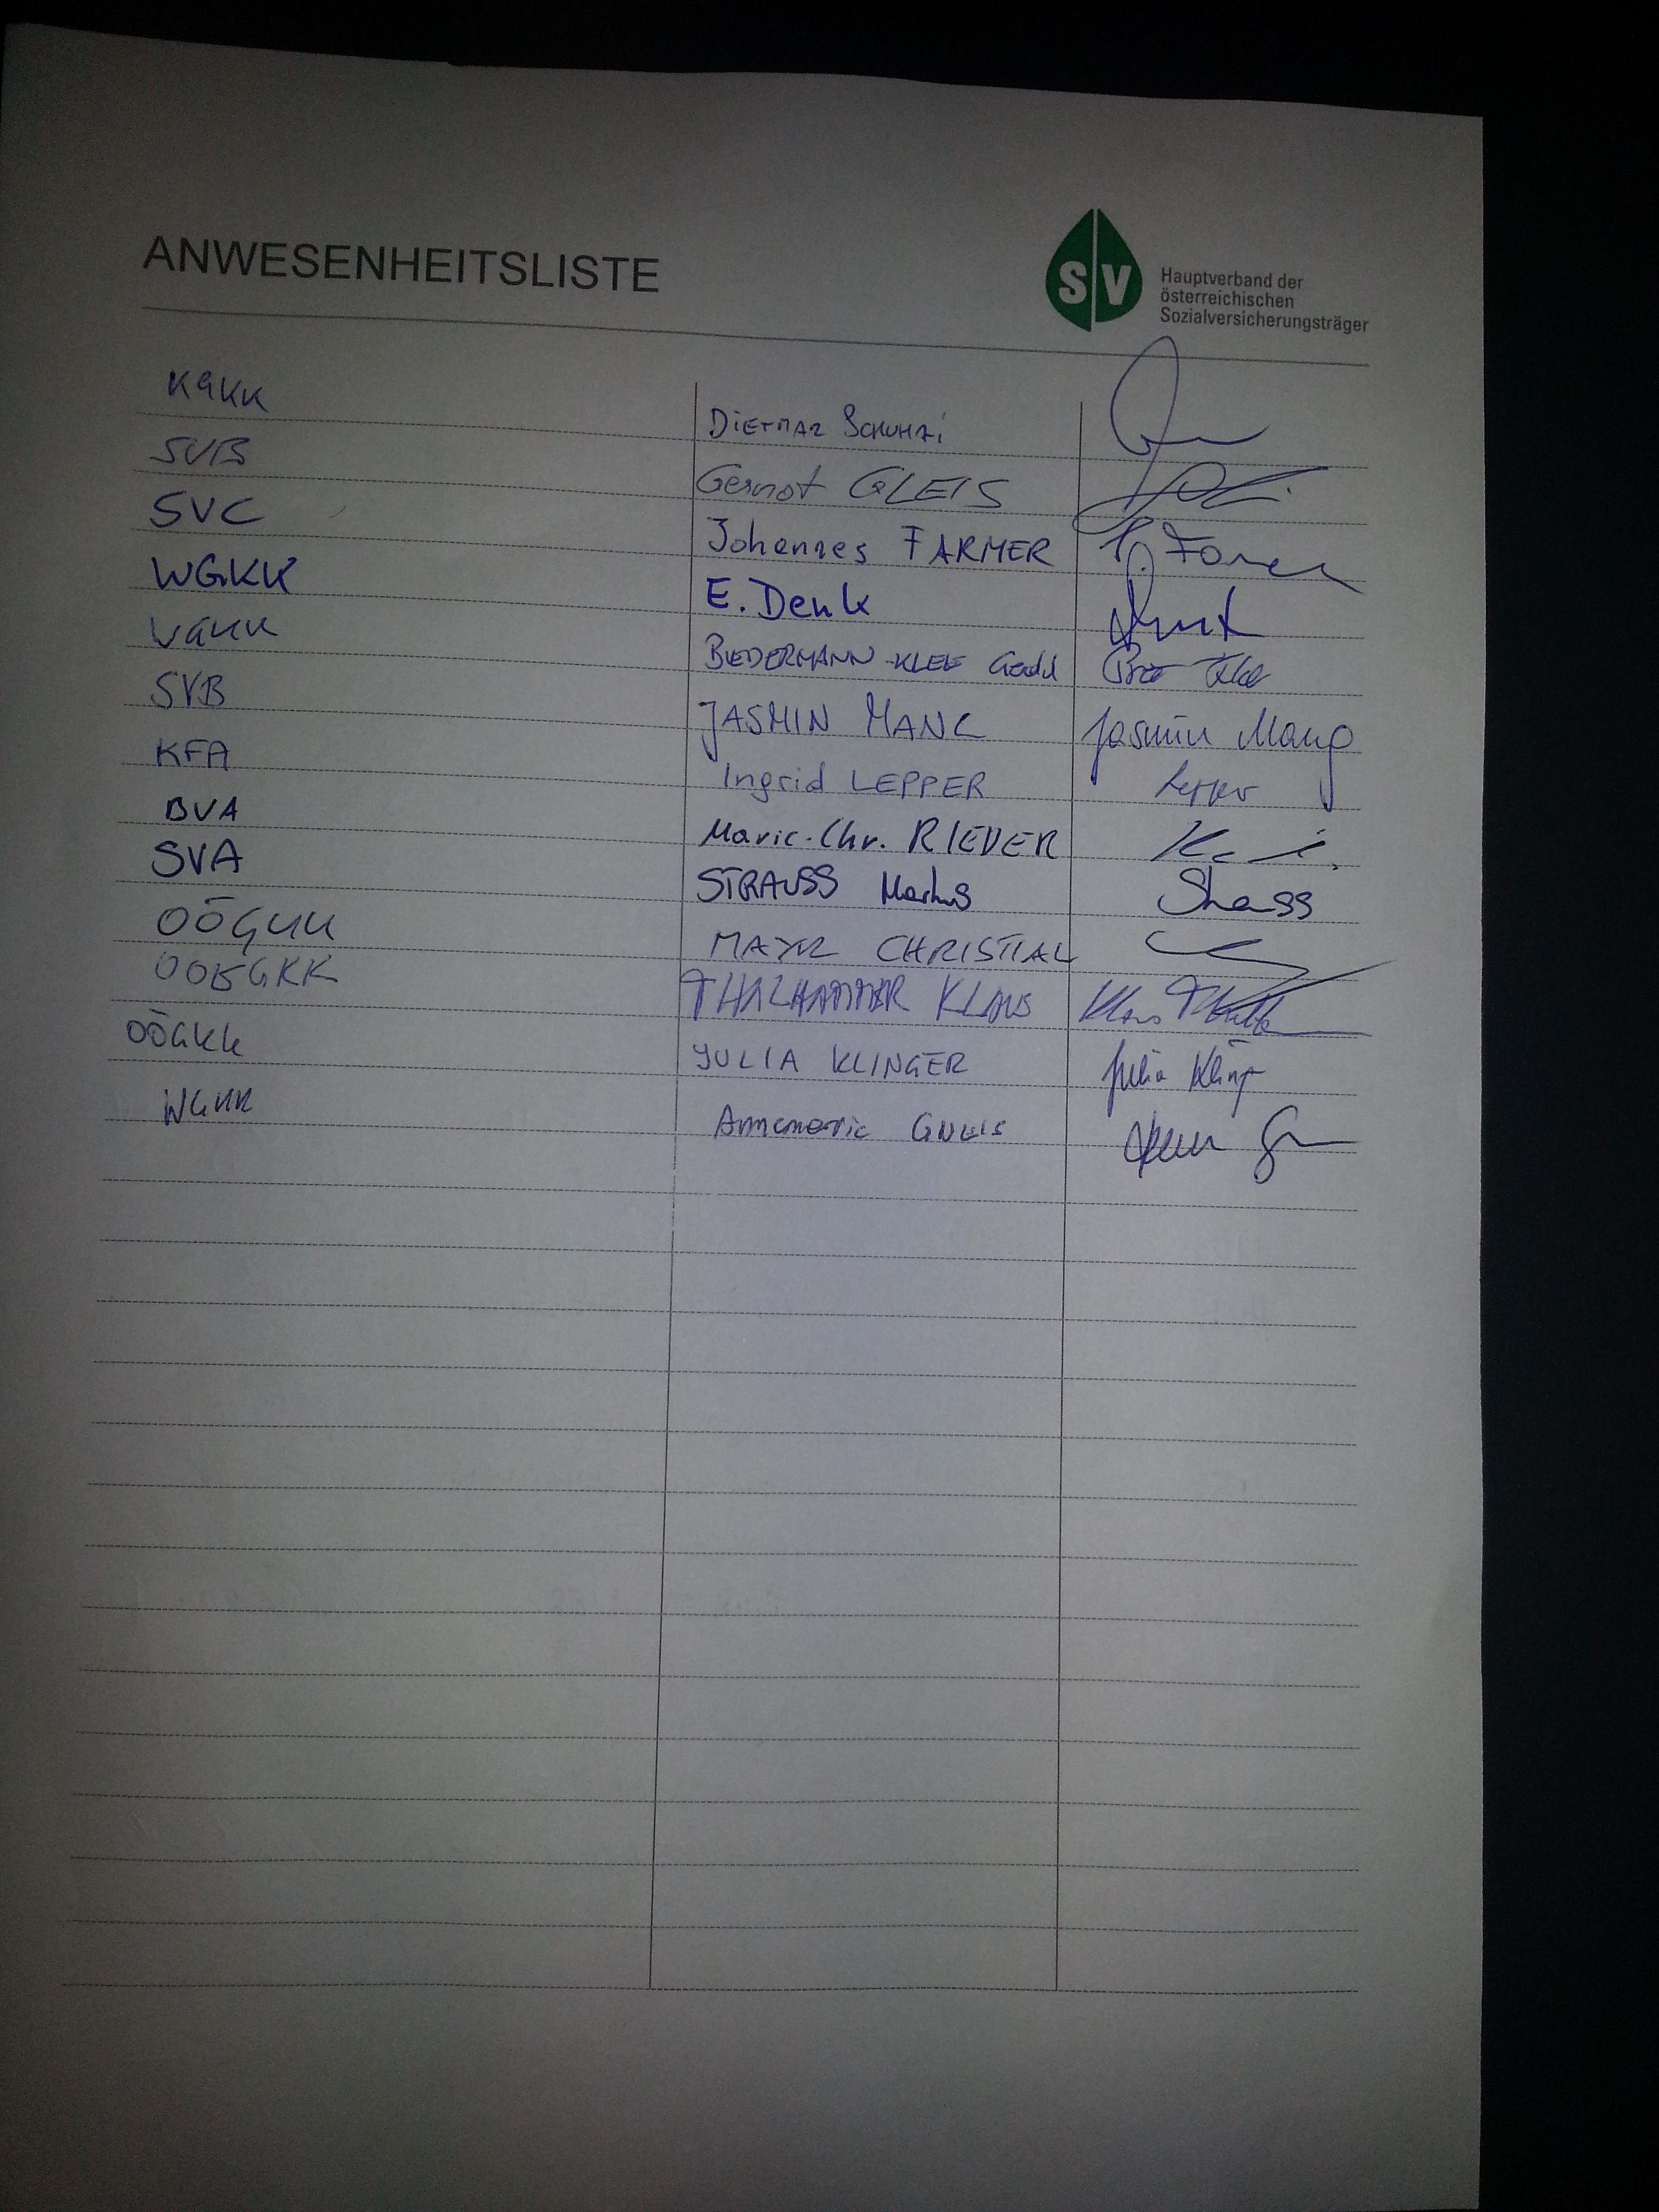 ANWESENHEITSLISTE
SV
Hauptverband der
österreichischen
Sozialversicherungsträger
KGKK DIETMAR
SVB Gernot GLEIS
SVC Johannes FARMER J. Farmer
WGKK E. Denk Denk
VGKK BIEDERMANN-KLEE
SVB JASMIN MANG Jasmin Mang
KFA Ingrid LEPPER Lepper
BVA Marie-Chr. RIEDER
SVA STRAUSS Markus Strauss
OÖGKK MAYR CHRISTIAN
OOEGKK THALHAMMER KLAUS Klaus
OÖGKK JULIA KLINGER Julia Kling
WGKK Annemarie